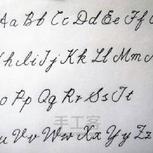 Aa Bb Cc Dd Ee Ff G
Hh Ii Jj Kk Ll Mm
o Pp Qq Rr Ss Tt
u Vv Ww Xx Yy Zz